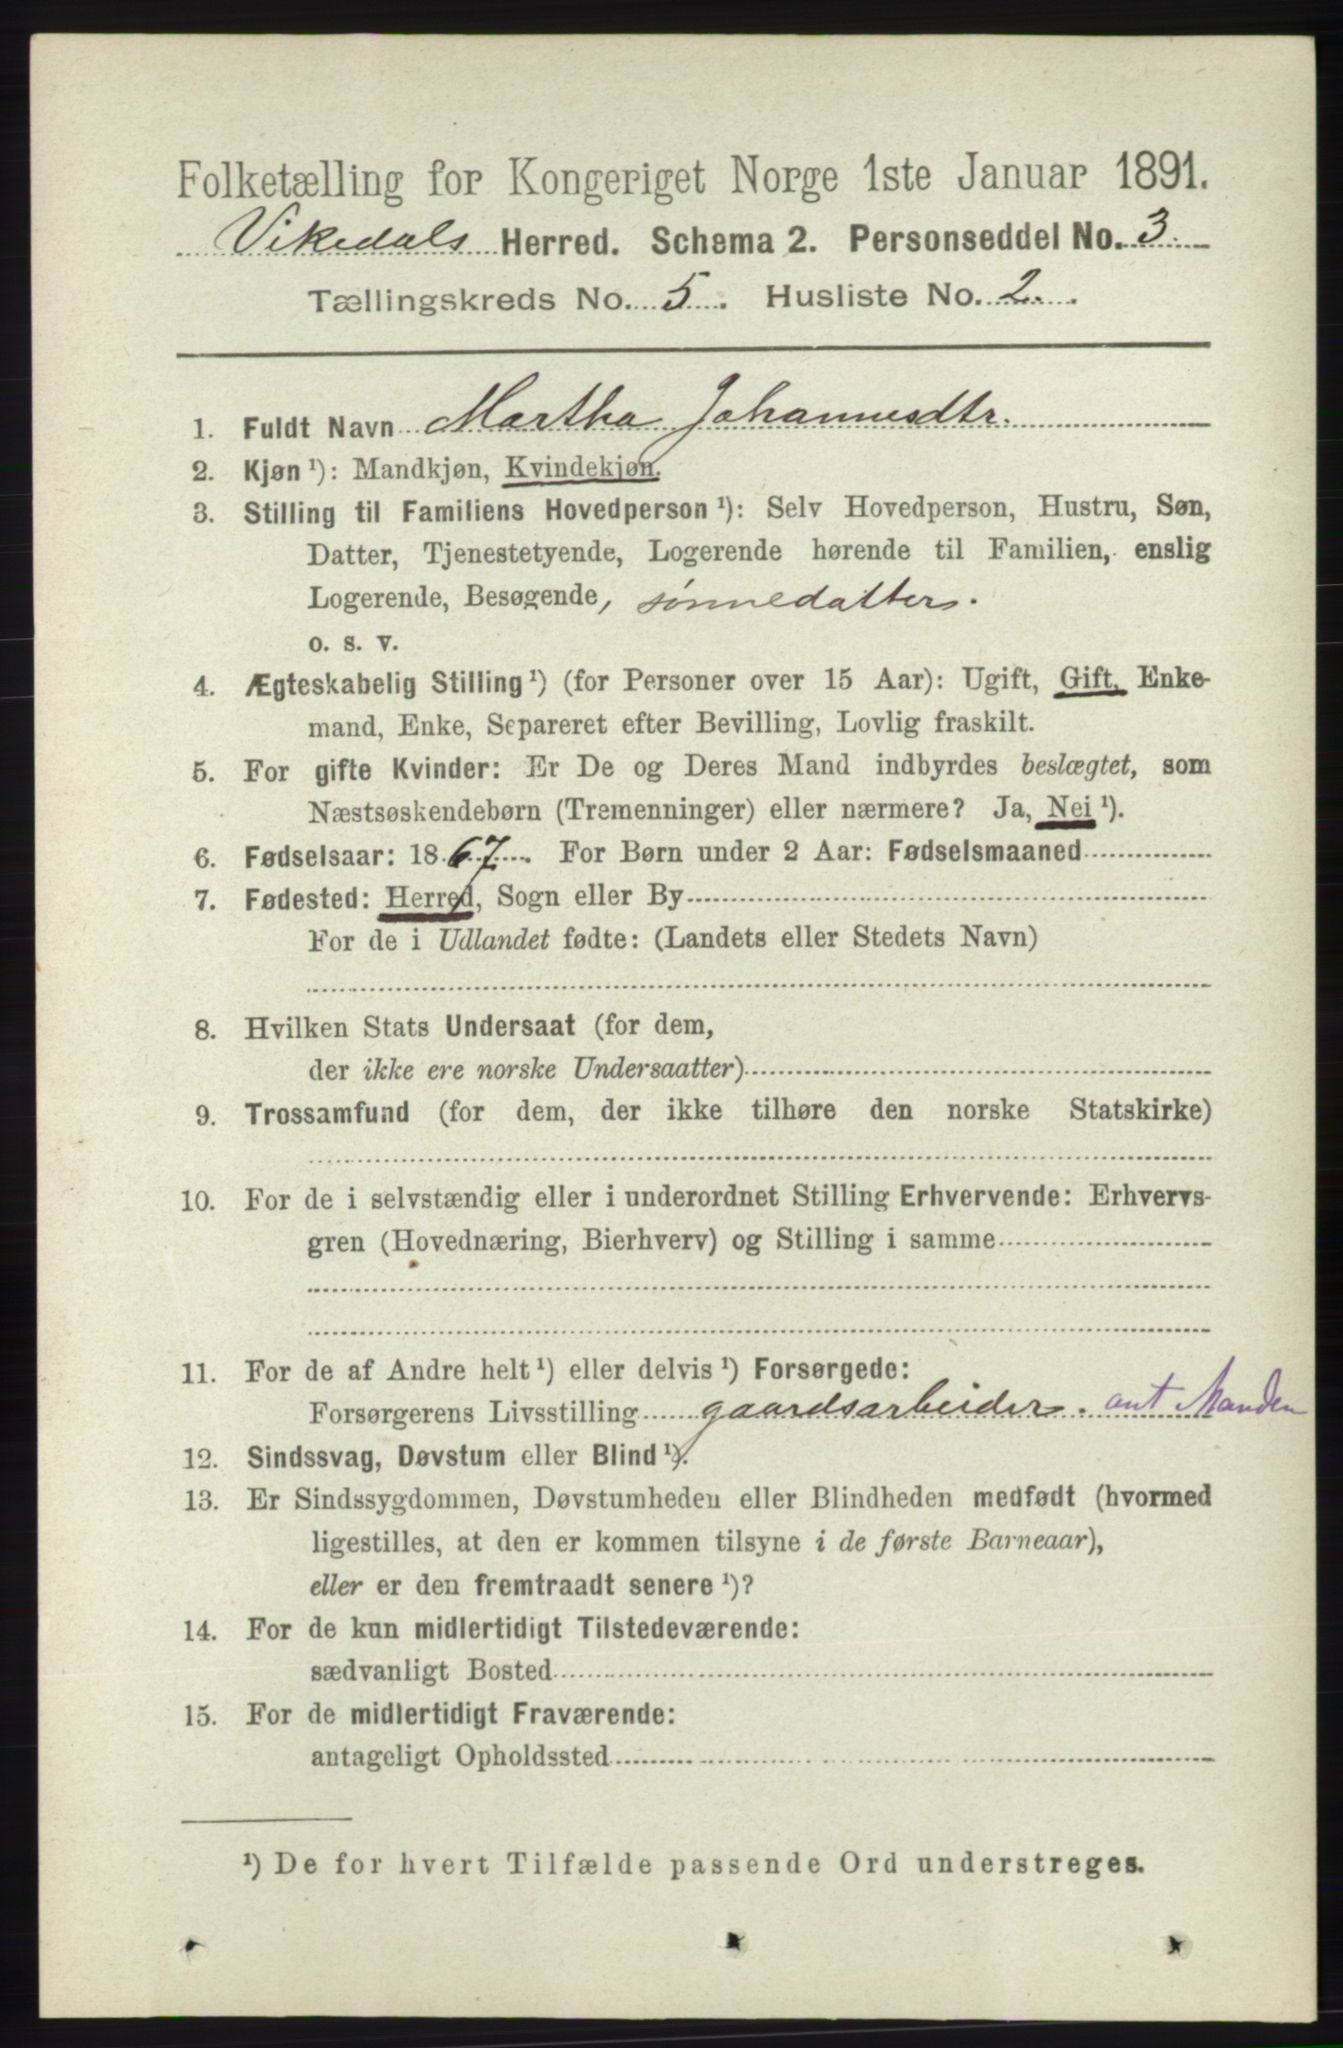 Folketælling for Kongeriget Norge 1ste Januar 1891.
Vikedals Herred. Schema 2. Personseddel No. 3.
Tællingskreds No. 5. Husliste No. 2.
1. Fuldt Navn Martha Johannesdtr.
2. Kjøn ¹): Mandkjøn, Kvindekjøn.
3. Stilling til Familiens Hovedperson ¹): Selv Hovedperson, Hustru, Søn,
Datter, Tjenestetyende, Logerende hørende til Familien, enslig
Logerende, Besøgende, sønnedatter.
o. s. v.
4. Ægteskabelig Stilling ¹) (for Personer over 15 Aar): Ugift, Gift, Enke-
mand, Enke, Separeret efter Bevilling, Lovlig fraskilt.
5. For gifte Kvinder: Er De og Deres Mand indbyrdes beslægtet, som
Næstsøskendebørn (Tremenninger) eller nærmere? Ja, Nei ¹).
6. Fødselsaar: 1867. For Børn under 2 Aar: Fødselsmaaned
7. Fødested: Herred, Sogn eller By
For de i Udlandet fødte: (Landets eller Stedets Navn)
8. Hvilken Stats Undersaat (for dem,
der ikke ere norske Undersaatter)
9. Trossamfund (for dem, der ikke tilhøre den norske Statskirke)
10. For de i selvstændig eller i underordnet Stilling Erhvervende: Erhvervs-
gren (Hovednæring, Bierhverv) og Stilling i samme
11. For de af Andre helt ¹) eller delvis ¹) Forsørgede:
Forsørgerens Livsstilling gaardsarbeider. ant Manden
12. Sindssvag, Døvstum eller Blind ¹).
13. Er Sindssygdommen, Døvstumheden eller Blindheden medfødt (hvormed
ligestilles, at den er kommen tilsyne i de første Barneaar),
eller er den fremtraadt senere ¹)?
14. For de kun midlertidigt Tilstedeværende:
sædvanligt Bosted
15. For de midlertidigt Fraværende:
antageligt Opholdssted
¹) De for hvert Tilfælde passende Ord understreges.